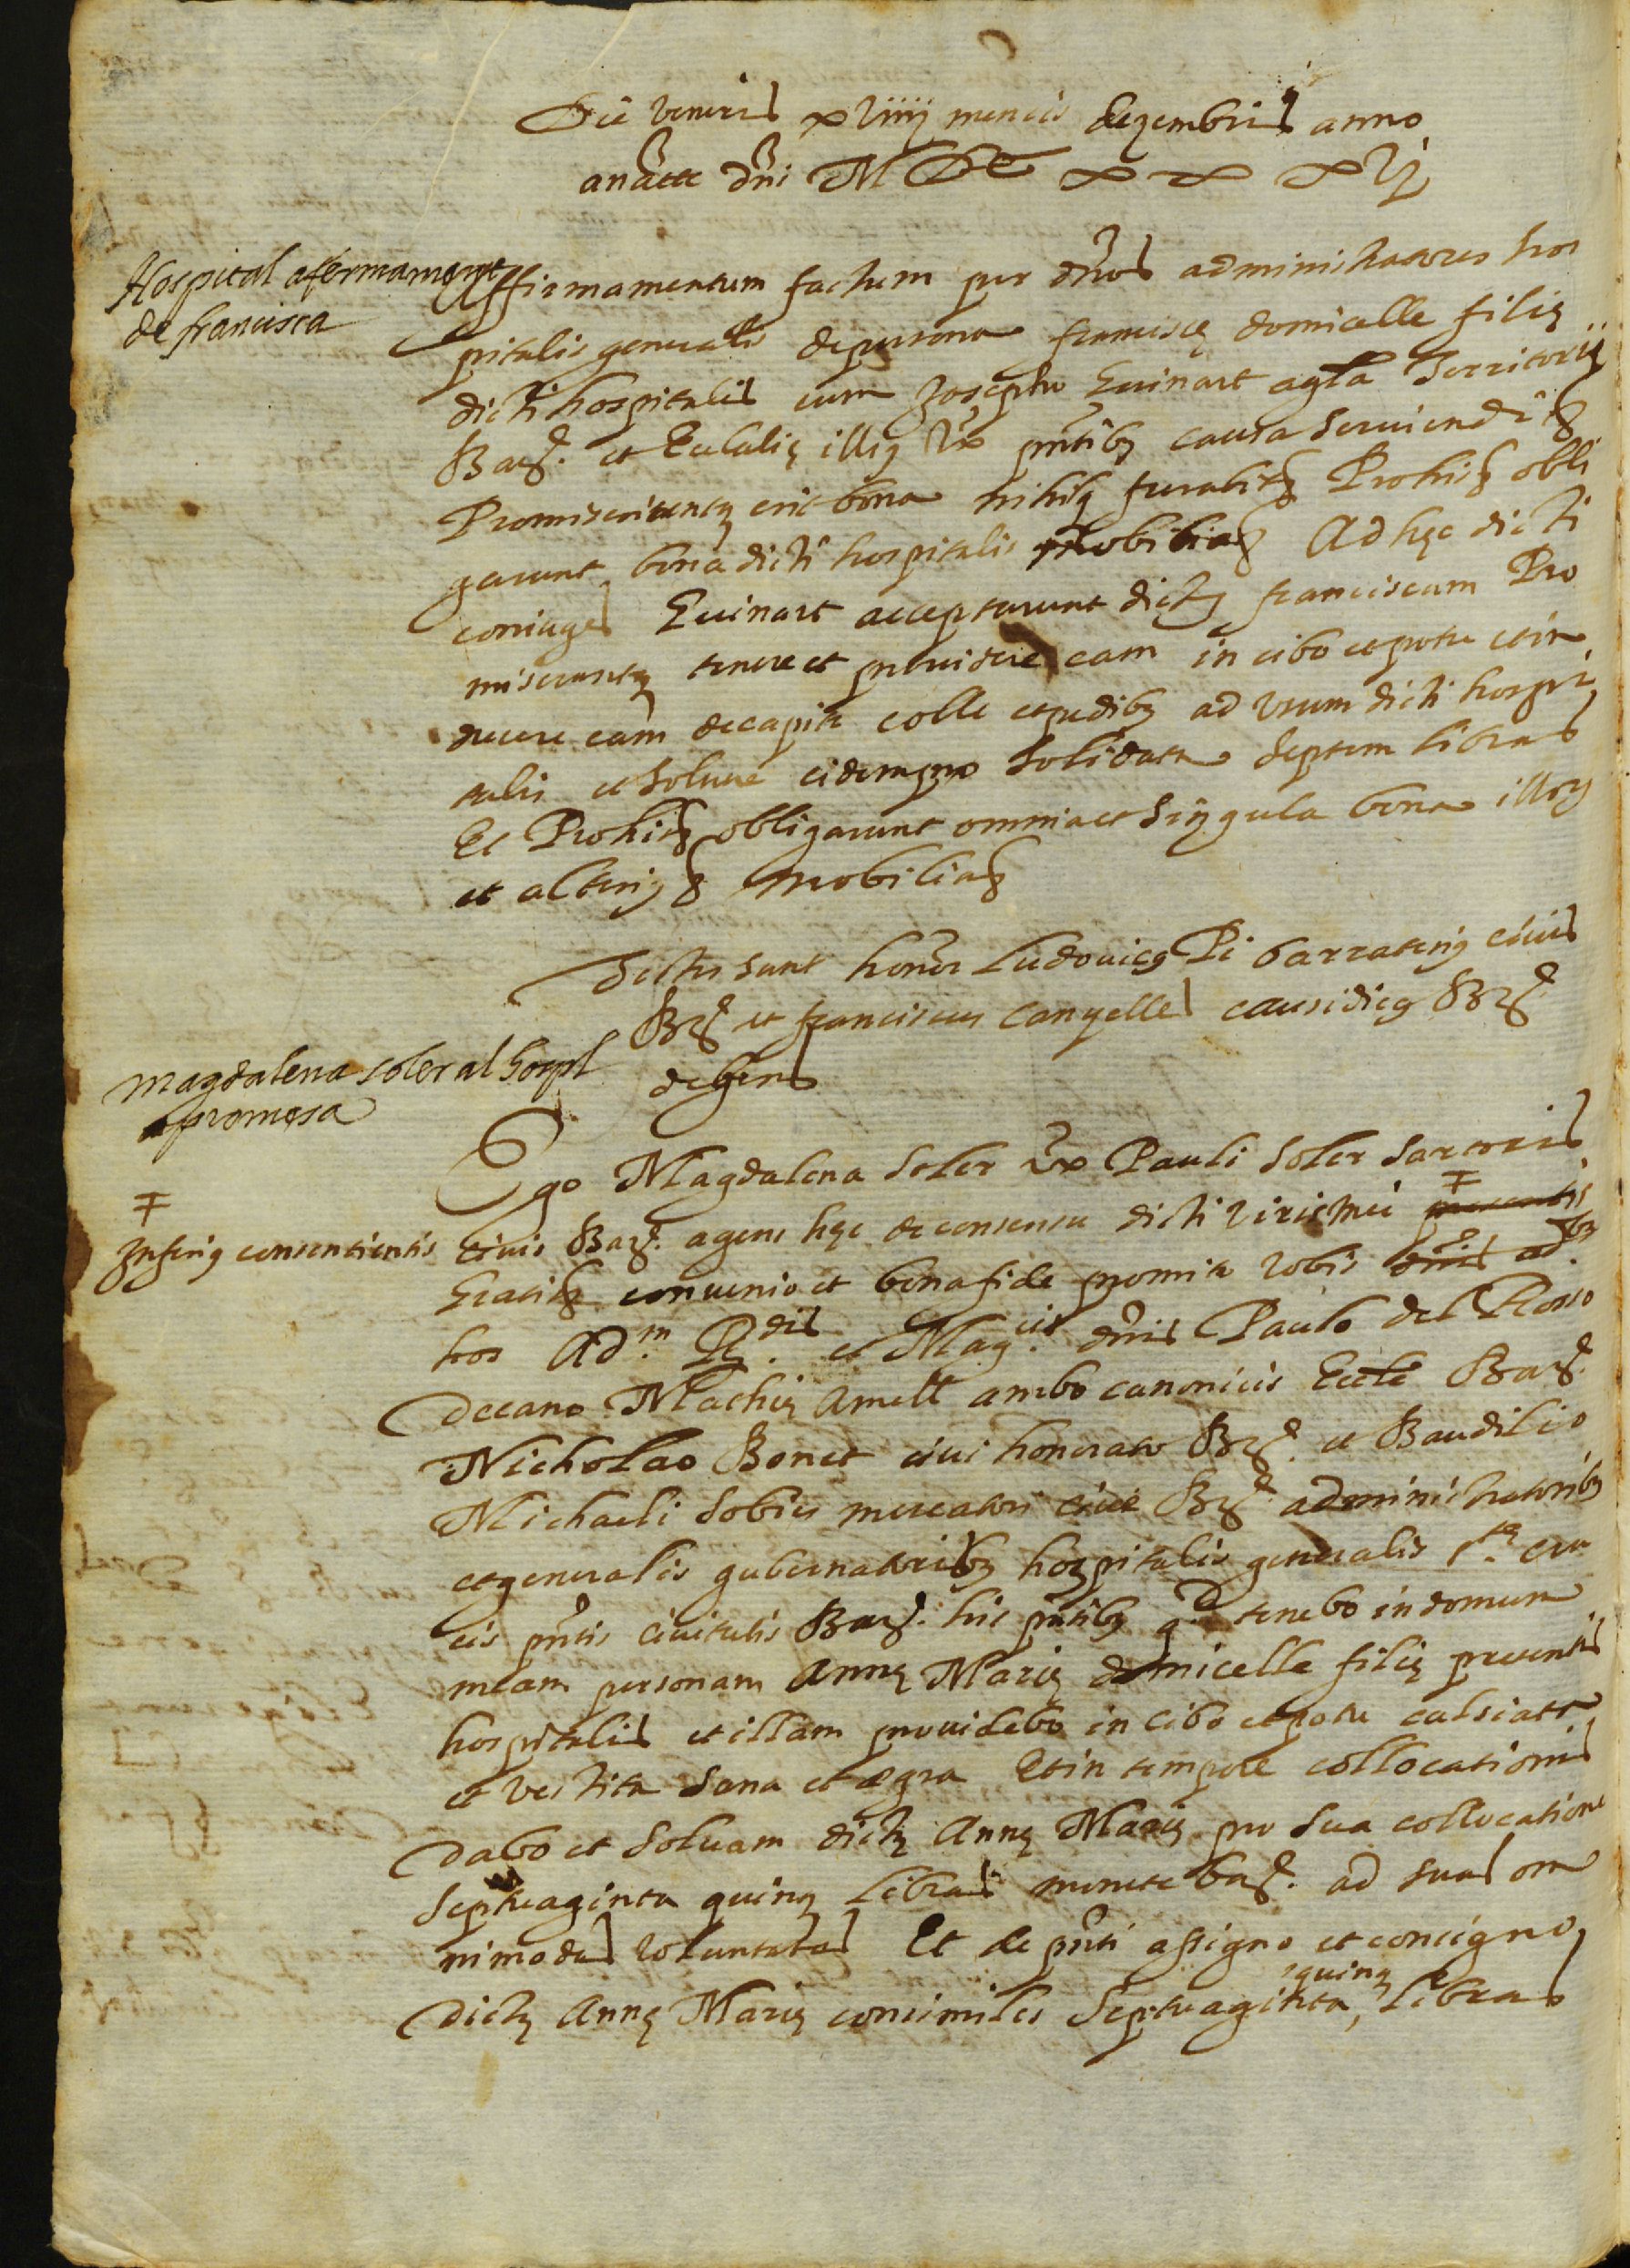 Die veneris xviiij mencis dezembris anno
a natte dñi MDC x x x vj
Hospital afermament
de francisca
Affirmamentum factum per dños administratores hos
pitalis generalis de persona francisce domicelle filie
dicti hospitalis cum Joseph Guinart agla Territorij
Barñe. et Eulalie illius vx pñtibus causa serviendi &
Promiseruntque erit bona nihilque furabitur & Pro his & obli
garunt bona dicti hospitalis mobilia & Ad hec dicti
coniuges Guinart acceptarunt dictam franciscam Pro
miseruntque tenere et providere eam in cibo et potu et in
duere eam de capite colle et pedibus ad usum dicti hospi
talis et solvere eidem pro solidata septem libras
Et Pro his & obligarunt omnia et singula bona illorum
et alterius & mobilia &
Testes sunt honor Ludovicus Pi barraterius civis
Barñe et franciscus Canyelles causidicus Barñe
degens
magdalena soler al hospl
apromesa
Ego Magdalena Soler vx Pauli Soler Sartoris
civis Barñe. agens hec de consensu dicti viri mei presentis
Inferius consentientis
Gratis & convenio et bona fide promitto vobis dñis adbus
hos Adm. Rdis. et Magcis. dñis Paulo del Rosso
Decano Mathie Amell ambo canonicis Eccle Barñe.
Nicholao Bonet civi honorato Barñe. et Baudilio
Michaeli Sobies mercatori cive Barñe. administratoribus
et generalis gubernatoribus hospitalis generalis Ste. cru
cis pñtis civitatis Barñe. his pñtibus qd tenebo in domum
meam personam Anne Marie domicelle filie presentis
hospitalis et illam providebo in cibo et potu calsiatu
et vestitu sana et egra Et in tempore collocationis
Dabo et solvam dicte Anne Marie pro sua collocatione
septuaginta quinque libras monete barñe. ad suas om
nimodas voluntates Et de pñti assigno et concigno
quinque
Dicte Anne Marie concimiles septuaginta, libras